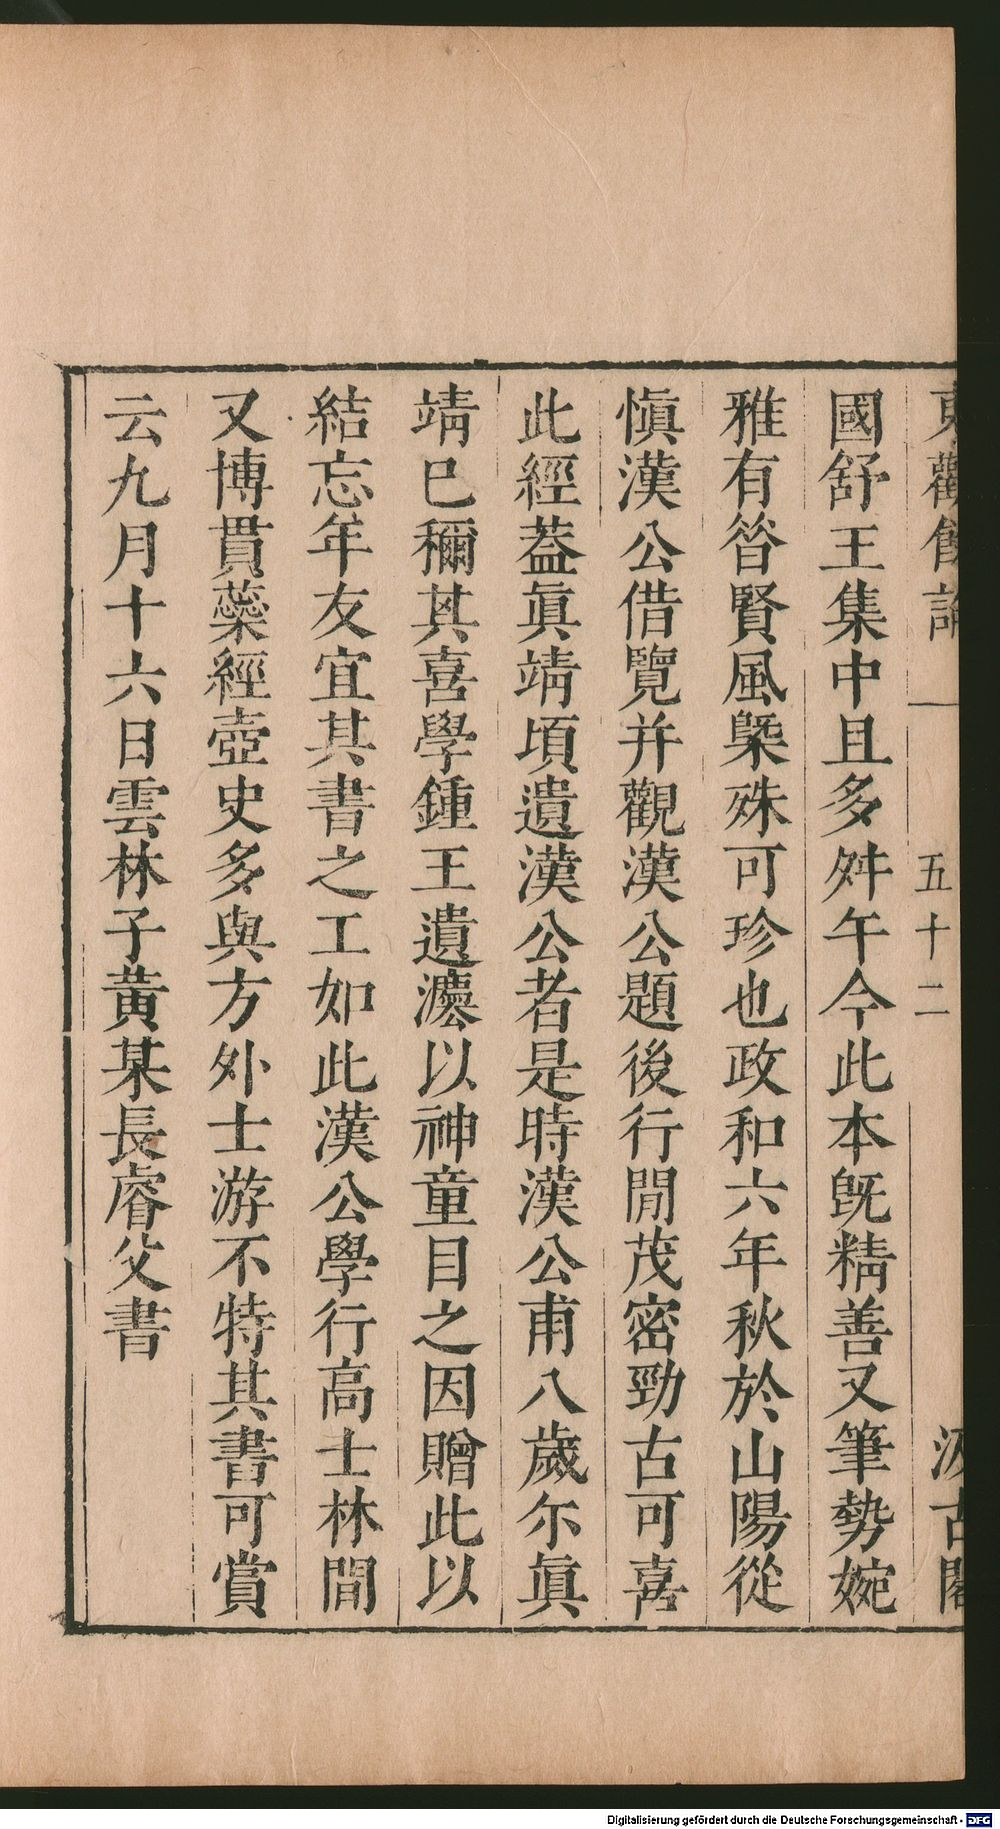 東觀餘論 一 五十二 汲古閣
國舒王集中且多舛午今此本旣精善又筆勢婉
雅有昝賢風槩殊可珍也政和六年秋於山陽從
愼漢公借覽幷觀漢公題後行間茂密勁古可喜
此經葢眞靖頃遺漢公者是時漢公甫八歲尓眞
靖巳穪其喜學鍾王遺灋以神童目之因贈此以
結忘年友宜其書之工如此漢公學行高士林間
又博貫藥經壺史多與方外士游不特其書可賞
云九月十六日雲林子黃某長睿父書
Digitalisierung gefördert durch die Deutsche Forschungsgemeinschaft - DFG